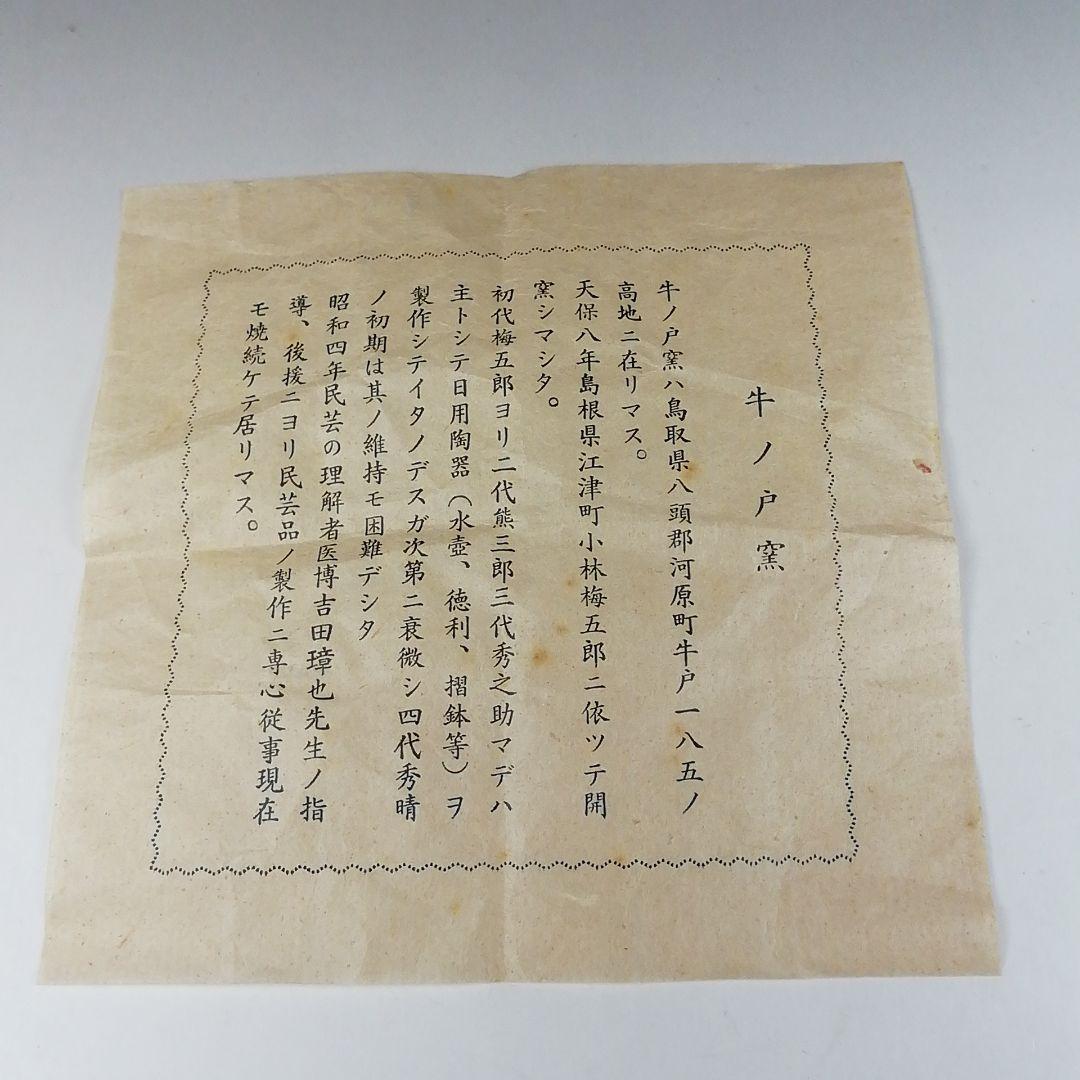 牛ノ戸窯
牛ノ戸窯ハ鳥取県八頭郡河原町牛戸一八五ノ
高地ニ在リマス。
天保八年島根県江津町小林梅五郎ニ依ツテ開
窯シマシタ。
初代梅五郎ヨリ二代熊三郎三代秀之助マデハ
主トシテ日用陶器（水壺、徳利、摺鉢等）ヲ
製作シテイタノデスガ次第ニ衰微シ四代秀晴
ノ初期は其ノ維持モ困難デシタ
昭和四年民芸の理解者医博吉田璋也先生ノ指
導、後援ニヨリ民芸品ノ製作ニ専心従事現在
モ焼続ケテ居リマス。